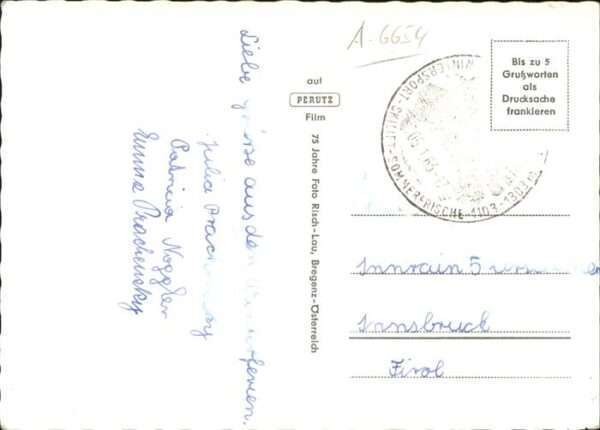 A-6654
Liebe Grüße aus den ferien.
Julia Prachensky
Patricia Noggler
Emma Prachensky
auf
PERUTZ
Film
75 Jahre Foto Risch-Lau, Bregenz-Österreich
WINTERSPORT-SKILIFT-SOMMERFRISCHE-1103-1303 m
Bis zu 5
Grußworten
als
Drucksache
frankieren
Innrain 5
Innsbruck
Tirol